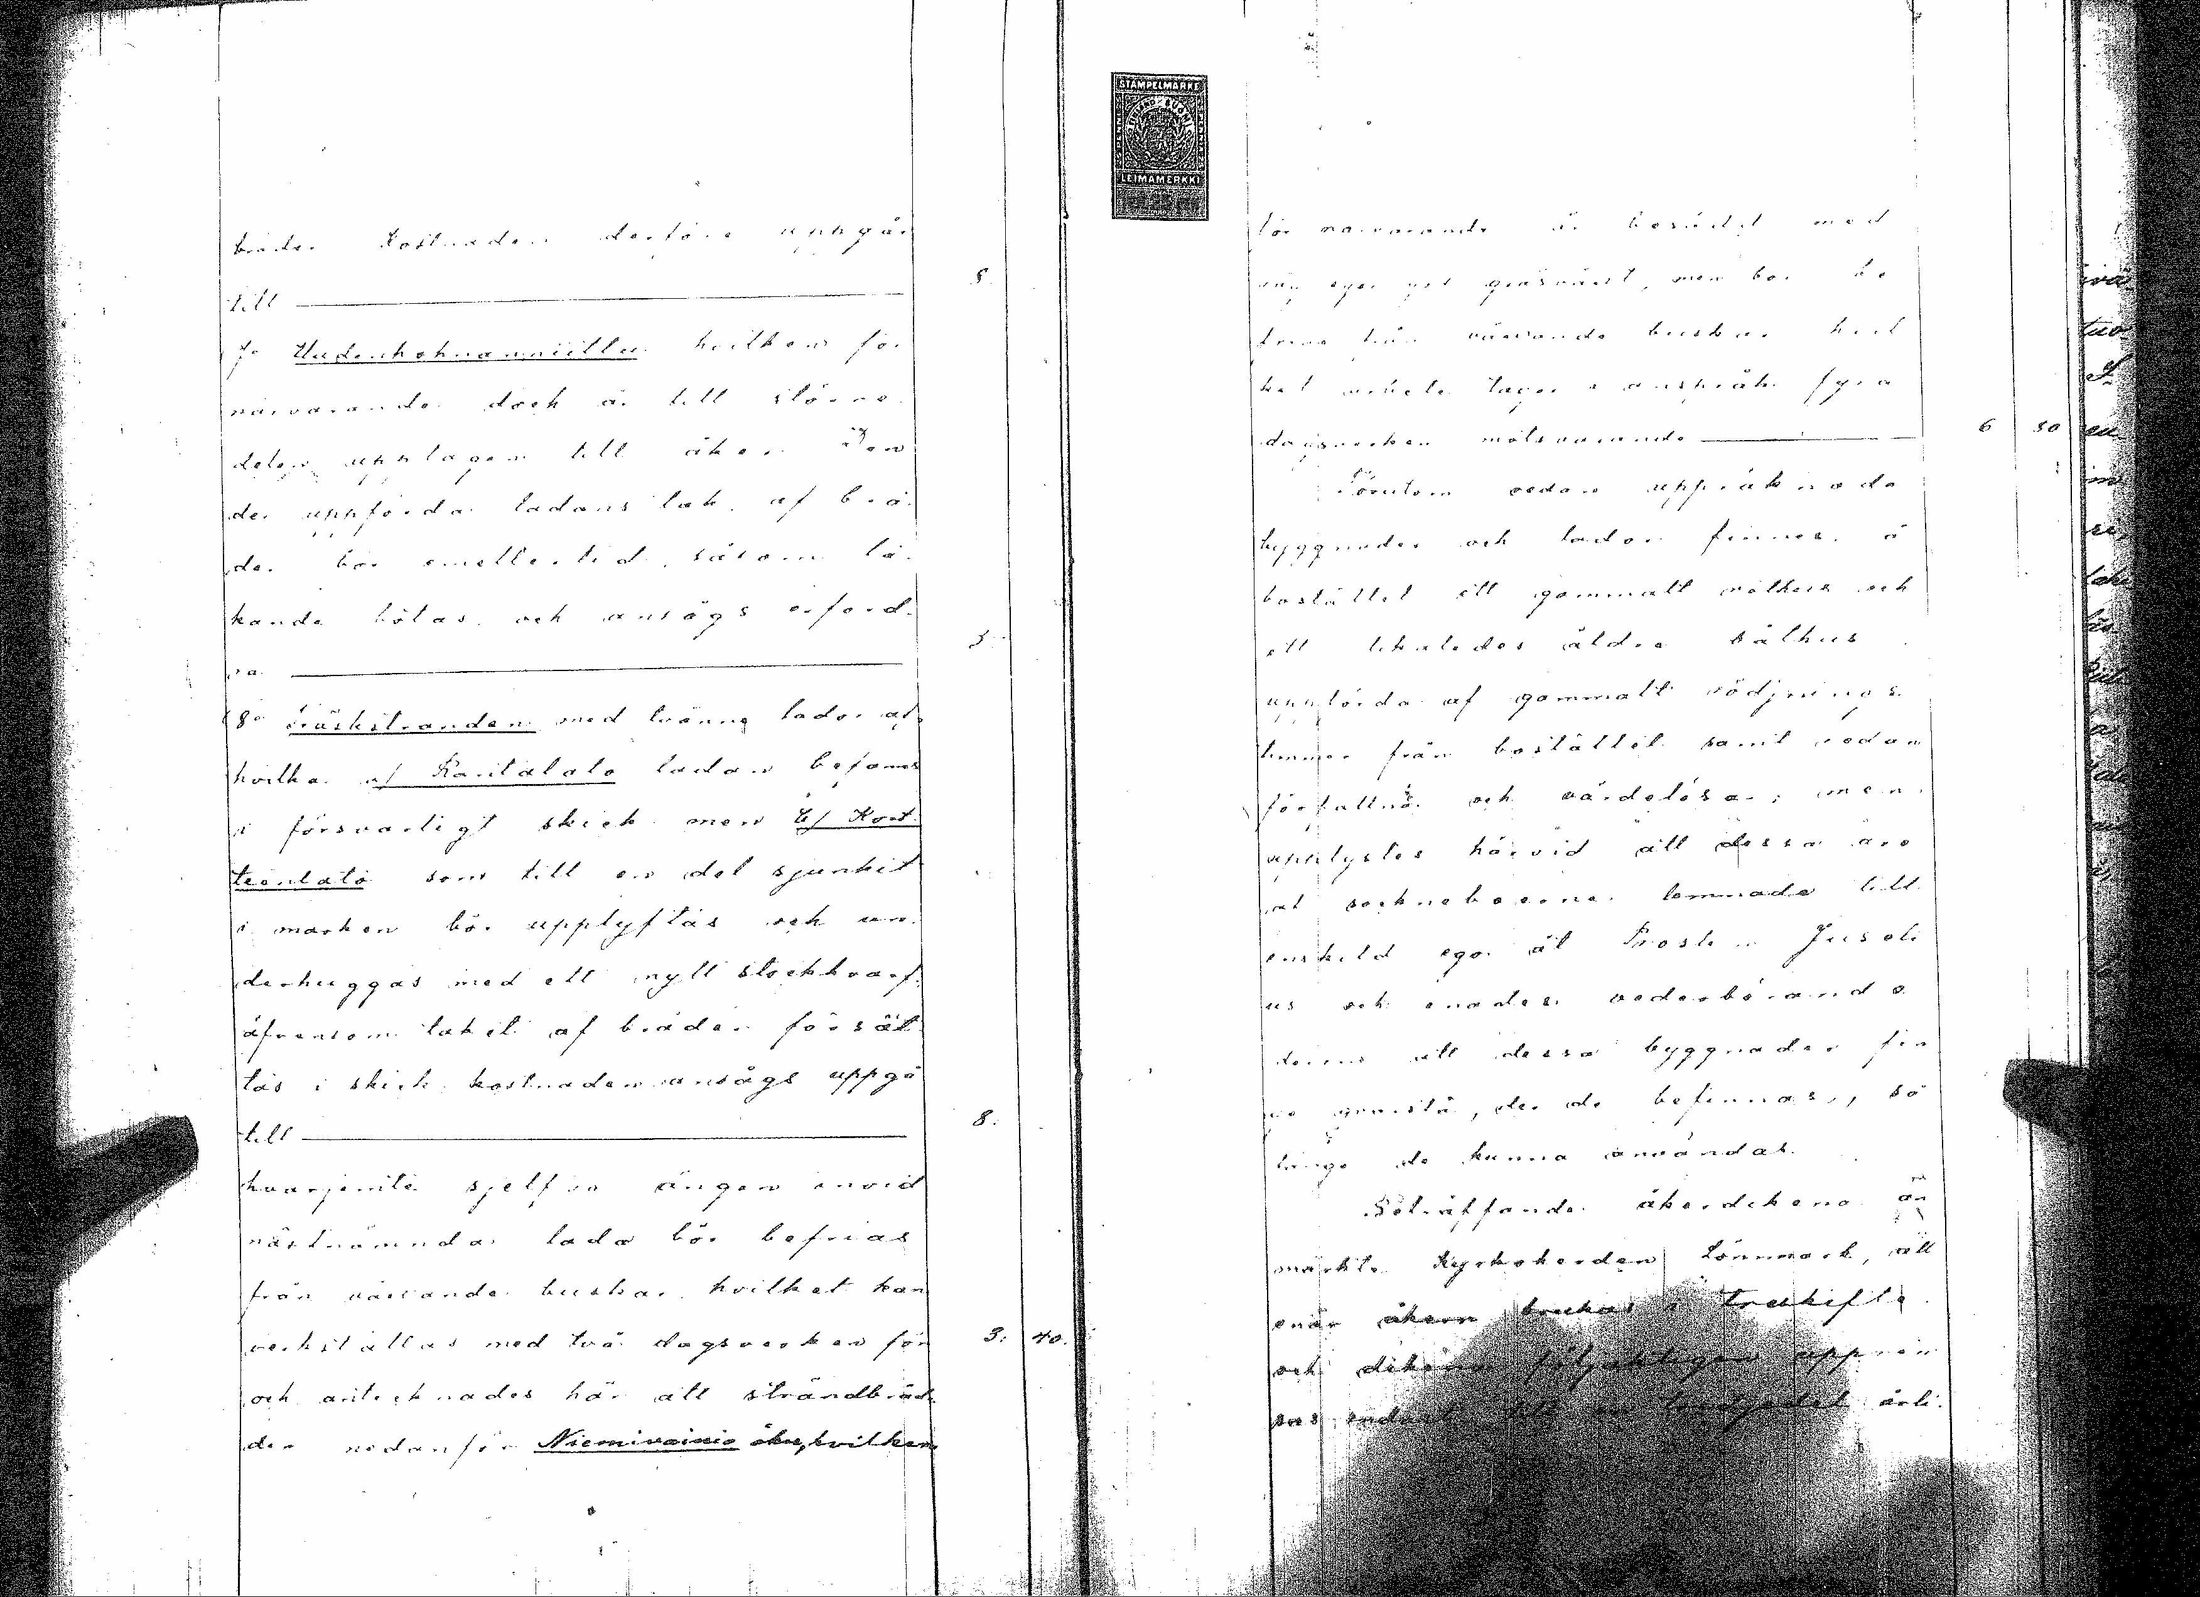 bräder. Kostnaden derföre uppgår
till — 5.
7o Uudenkohnanniittu hvilken för
närvarande dock är till större
delen upptagen till åker. Den
der uppförda ladans tak af brä-
der bör emellertid, såsom lä-
kande bötas, och ansågs erford-
ra — 3.
8o träskstranden med tvänne lador af
hvilka a/ Rantalato ladan befanns
i försvarligt skick men b/ Kort
teenlato som till en del sjunkit
i marken bör upplyftas och un-
derhuggas med ett nytt stockhvarf
äfvensom taket af bräder försät
tas i skick. kostnaden ansågs uppgå
till — 8.
hvarjemte sjelfva ängen invid
nästnämnda lada bör befrias
från växande buskar, hvilket kan
verkställas med två dagsverken för 3. 40.
och antecknades här att strandbräd
den nedanför Niemivainio åker, hvilken
STÄMPELMÄRKE
LEIMAMERKKI
för närvarande är besådd med
gräsväxt, men bör be
frias från växande buskar hvil
ket arbete tager i anspråk fyra
dagsverken motsvarande — 6 80
Förutom redan uppräknade
byggnader och lador finnes å
bostället ett gammalt rothus och
ett likaledes äldre
uppförda af gammalt rödjnings
timmer från bostället samt redan
förfallna och värdelösa; men
upplystes härvid att dessa äro
af sockneboerne lemnade till
enskild ego åt Prosten Jusel
us och enades vederbörande
derom att dessa byggnader fin
ge qvarstå, der de befinnas, så
länge de kunna användas.
Beträffande åkerdikena an
märkte Kyrkoherden Lönnmark, att
enär åkern brukas i treskifte
och dikena följaktligen upprän
sas endast till en tredjedel årli-